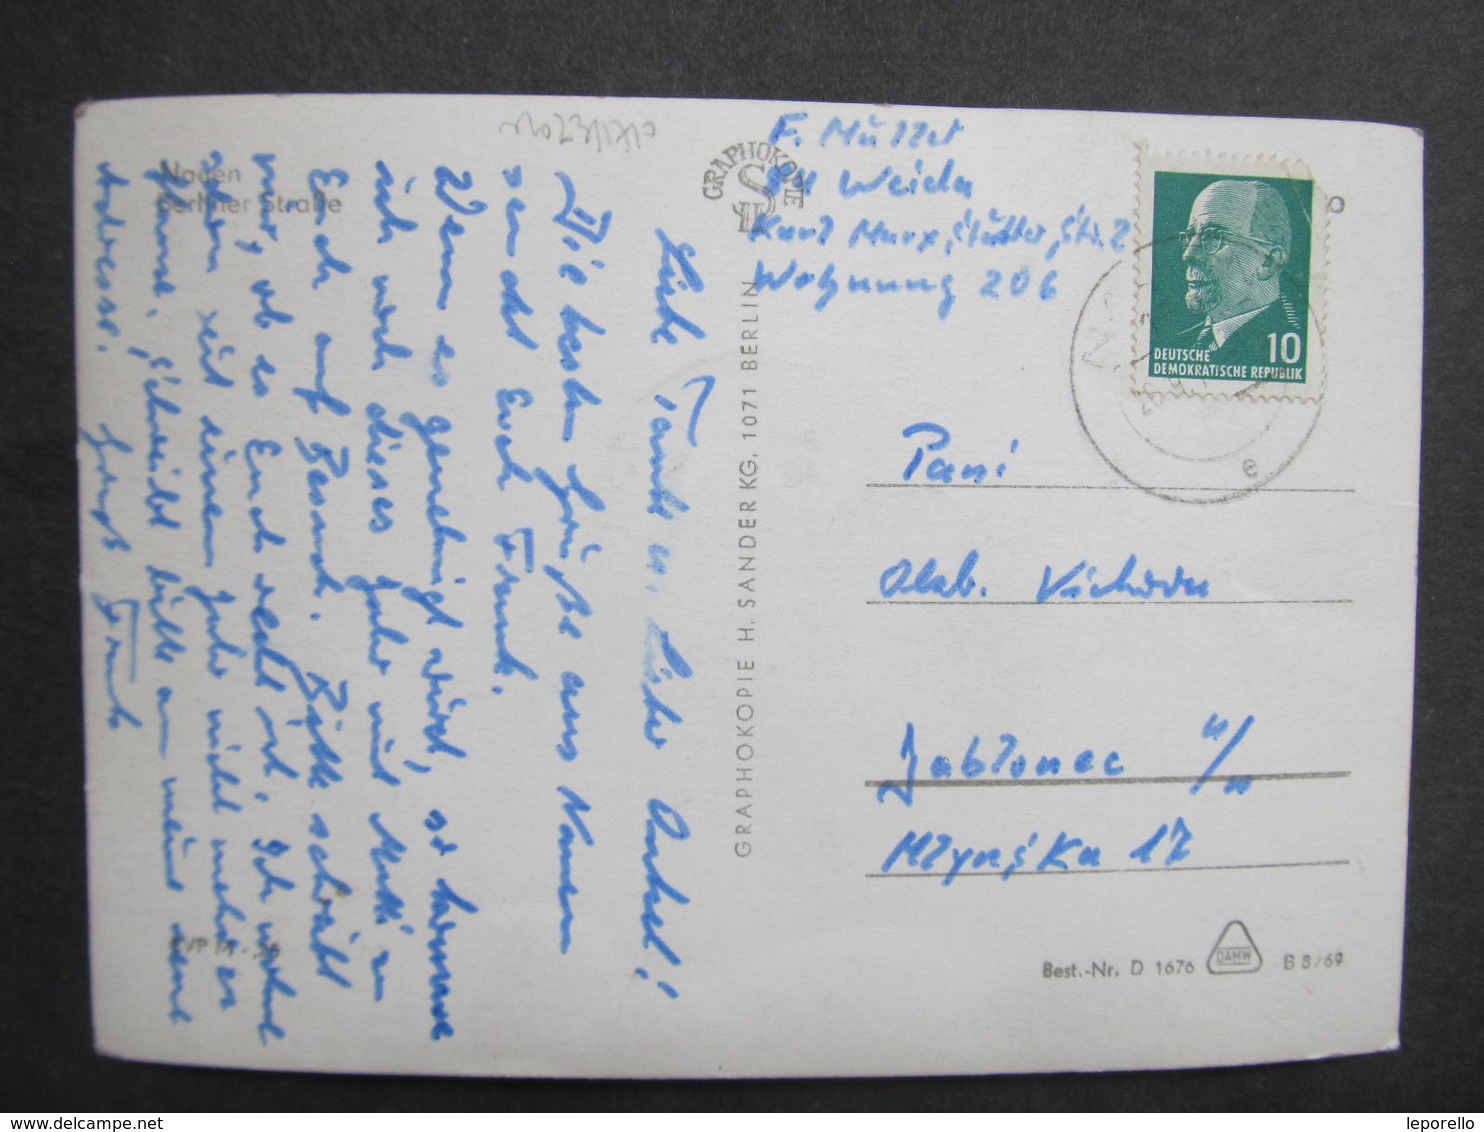 Nauen
Berliner Straße
Liebe Tante u. Lieber Onkel!
Die besten Grüße aus Nauen
sendet Euch Frank.
Wenn es genehmigt wird, so komme
ich noch dieses Jahr mit Mutti zu
Euch auf Besuch. Bitte schreibt
mir, ob es Euch recht ist. Ich wohne
schon seit einem Jahr nicht mehr zu
Hause. Schreibt bitte an meine neue
Adresse. Gruß Frank
GRAPHOKOPIE
H S
GRAPHOKOPIE H. SANDER KG, 1071 BERLIN
F. Müller
Weida
Karl Marx, Städter, Str. 2
Wohnung 206
10
DEUTSCHE
DEMOKRATISCHE REPUBLIK
e
Pani
Jabłonec n/n
Mlynska 17
Best.-Nr. D 1676
DAMW
B 3/69
www.delcampe.net
leporello